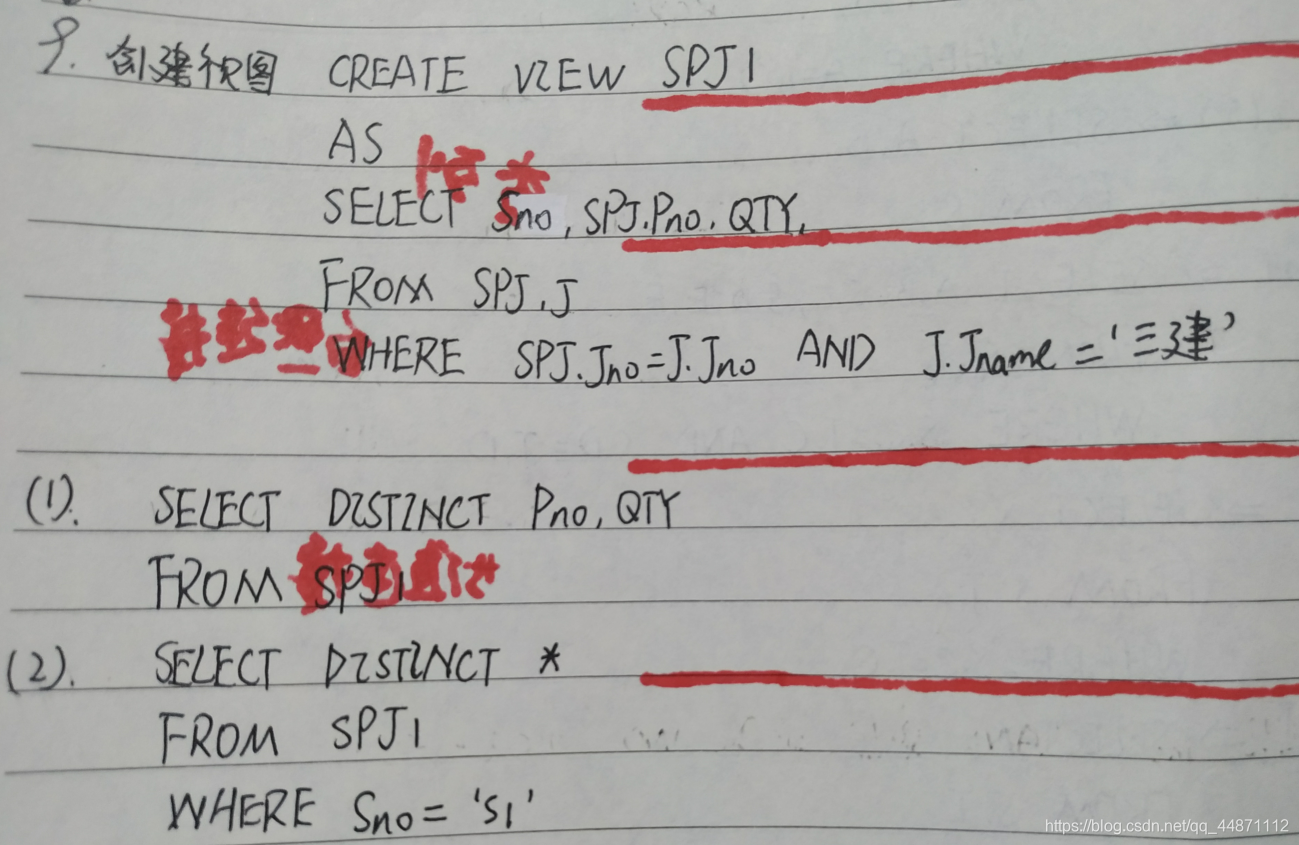 9. 创建视图 CREATE VIEW SPJ1
AS
SELECT Sno, SPJ.Pno, QTY,
FROM SPJ, J
WHERE SPJ.Jno=J.Jno AND J.Jname='三建'
(1). SELECT DISTINCT Pno, QTY
FROM SPJ1
(2). SELECT DISTINCT *
FROM SPJ1
WHERE Sno='S1'
https://blog.csdn.net/qq_44871112